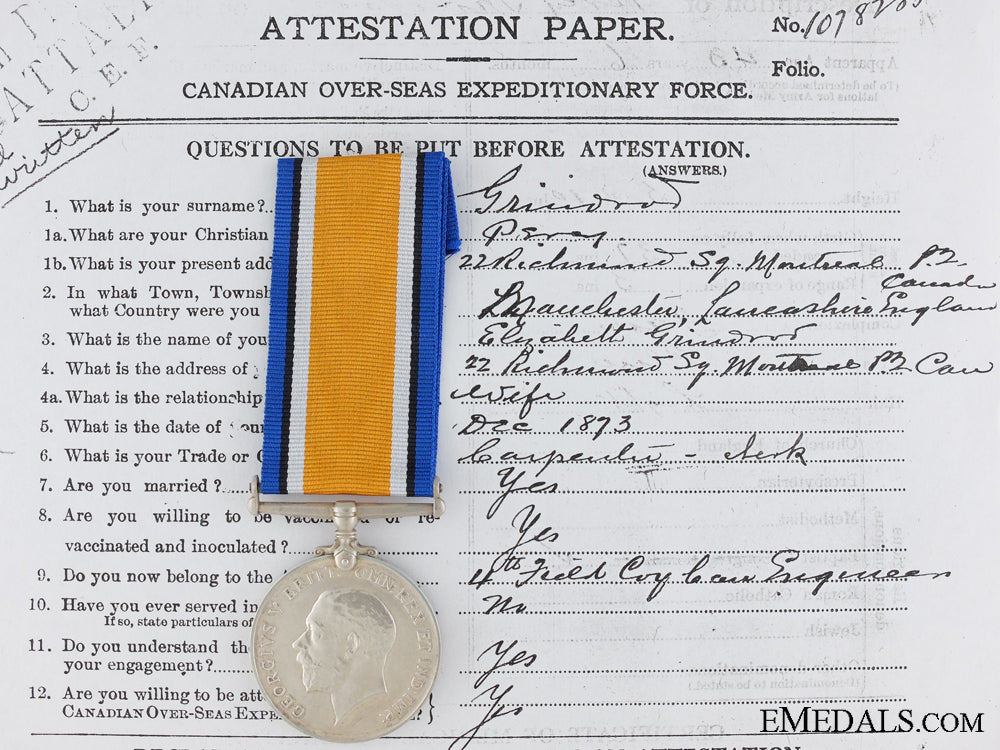 ATTESTATION PAPER.
No.
Folio.
CANADIAN OVER-SEAS EXPEDITIONARY FORCE.
C. E. F.
written
QUESTIONS TO BE PUT BEFORE ATTESTATION.
(ANSWERS.)
1. What is your surname?.. Grindrod
1a. What are your Christian Percy
1b. What is your present add 22 Richmond Sq. Montreal P.Q.
Canada
2. In what Town, Townsh
what Country were you Manchester, Lancashire England
3. What is the name of you Elizabeth Grindrod
4. What is the address of 22 Richmond Sq. Montreal P.Q Can
4a. What is the relationship Wife
5. What is the date of your Dec 1873
6. What is your Trade or Carpenter - clerk
7. Are you married?.... Yes
8. Are you willing to be vaccinated or re-
vaccinated and inoculated?.... Yes
9. Do you now belong to the 4th Field Coy Can Engineers
10. Have you ever served in No
If so, state particulars of
11. Do you understand the
your engagement?.... Yes
12. Are you willing to be att
CANADIAN OVER-SEAS EXPE } Yes
GEORGIVS V BRITT: OMN: REX ET IND: IMP:
EMEDALS.COM